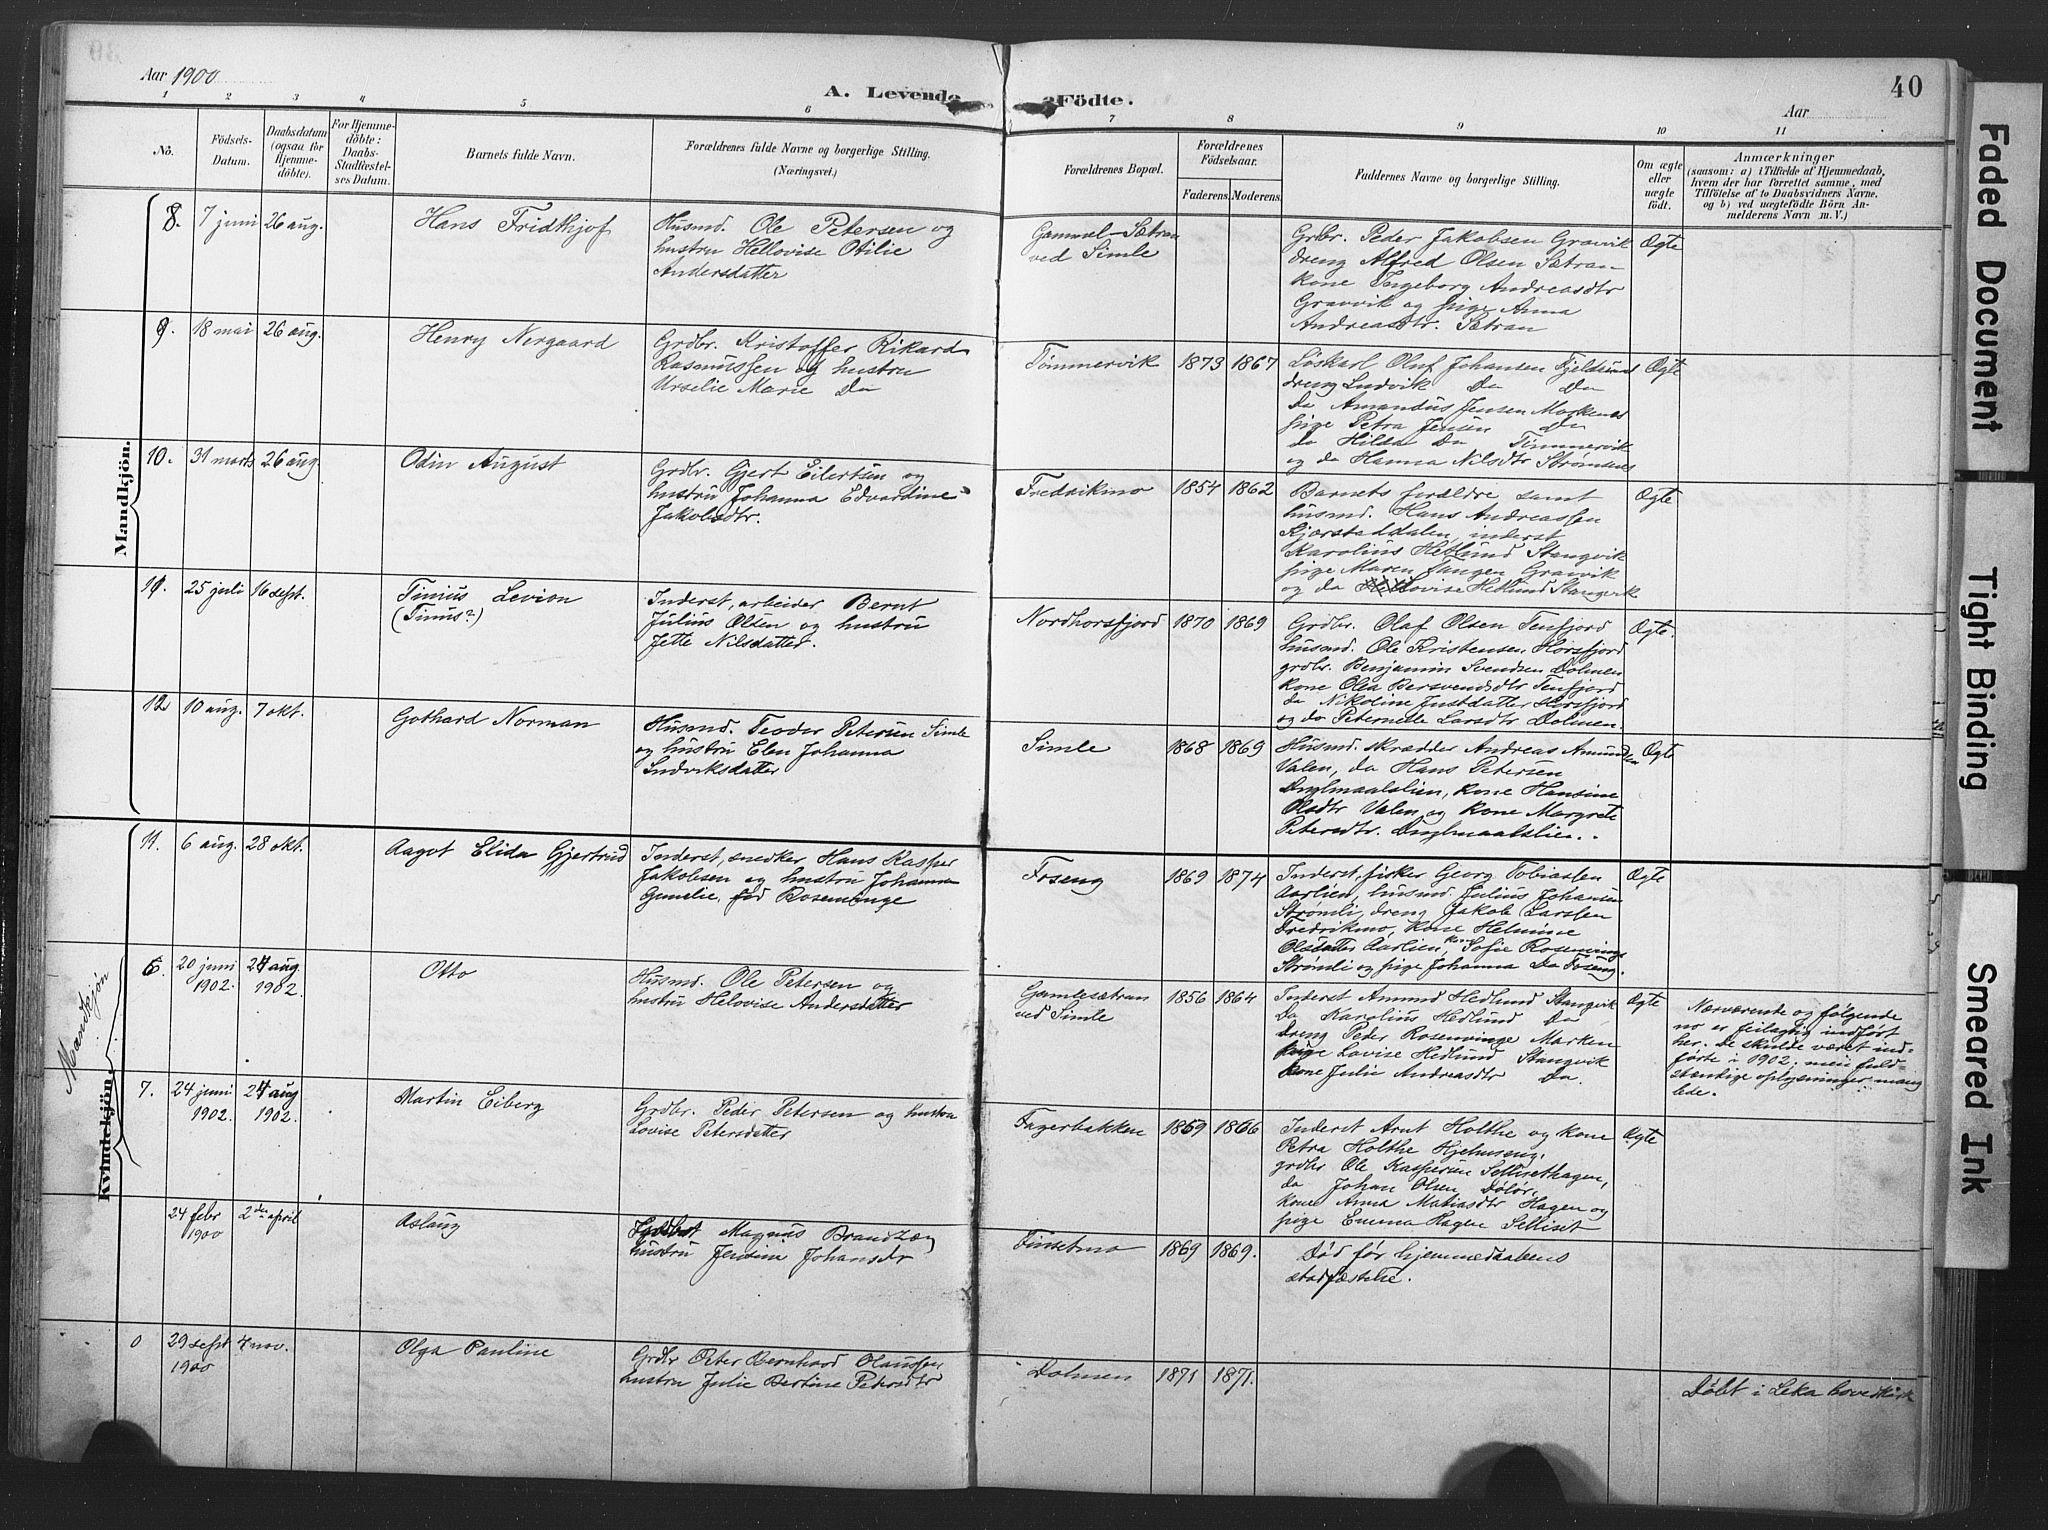 Aar 1900
A. Levende Födte.
Aar
40
1 2 3 4 5 6 7 8 9 10 11
No.
Födsels-Datum.
Daabsdatum (ogsaa for Hjemmedöbte).
For Hjemmedöbte: Daabs-Stadfæstelses Datum.
Barnets fulde Navn.
Forældrenes fulde Navne og borgerlige Stilling.
(Næringsvei.)
Forældrenes Bopæl.
Forældrenes Födselsaar.
Faderens. Moderens.
Faddernes Navne og borgerlige Stilling.
Om ægte eller uægte födt.
Anmærkninger
(saasom: a) i Tilfælde af Hjemmedaab, hvem der har forrettet samme, med Tilföielse af to Daabsvidners Navne, og b) ved uægtefödte Börn Anmelderens Navn m. V.)
Mandkjön.
8. 7 juni 26 aug. Hans Fridthjof
Husmd. Ole Petersen og
hustru Hellovise Otilie
Andersdatter
Gammel-Sætran
ved Simle
Grbr. Peder Jakobsen Gravik
dreng Alfred Olsen Sætran
kone Ingeborg Andreasdtr
Gravvik og pige Anna
Andreasdtr. Sætran
Ægte
9. 18 mai 26 aug. Henry Nergaard
Grdbr. Kristoffer Rikard
Rasmussen og hustru
Urselie Marie Do
Tømmervik 1873 1867
Løskarl Oluf Johansen Fjeldsund
dreng Ludvik Do Do
Do Amandus Jensen Markenes
pige Petra Jensen Do
do Hilda Do Tømmervik
og do Hanna Nilsdtr Strømsnes
Ægte
10. 31 marts 26 aug. Odin August
Grdbr. Gjert Eilertsen og
hustru Johanna Edvardine
Jakobsdtr.
Fredrikmo 1854 1862
Barnets forældre samt
husmd. Hans Andreassen
Kjærstaddalen, inderst
Karolius Hetlund Stangvik
pige Maren Tangen Gravvik
og do Lovise Hedlund Stangvik
Ægte
11. 25 juli 16 sept. Timius Levion
(Timus?)
Inderst, arbeider Bernt
Julius Olsen og hustru
Jette Nilsdatter.
Nordhorsfjord 1870 1869
Grdbr. Olaf Olsen Tenfjord
husmd. Ole Kristensen Horsfjord
grdbr. Benjamin Svendsen Dolmen
kone Olea Bersvendsdtr Tenfjord
da Nikoline Justdatter Horsfjord
og do Peternelle Larsdtr Dolmen.
Ægte.
12 10 aug. 7 okt. Gothard Norman
Husmd. Teodor Petersen Simle
og hustru Elen Johanna
Ludviksdatter
Simle 1868 1869
Husmd. skrædder Andreas Amundsen
Valen, do Hans Petersen
Duglmaalslien, kone Hansine
Olsdtr Valen og kone Margrete
Petersdtr. Duglmaalslien.
Ægte
Kvindekjön.
11. 6 aug. 28 okt. Aagot Elida Gjertrud
Inderst, snedker Hans Kasper
Jakobsen og hustru Johanna
Gemelie, fød Rosenvinge
Foseng 1869 1874
Inderst, fisker Georg Tobiassen
Aarlien, husmd. Julius Johansen
Strømli, dreng Jakob Larssen
Fredrikmo, kone Helmine
Olsdatter Aarlien, kone Sofie Rosenvinge
Strømli og pige Johanna Do Foseng.
Ægte
Mandkjøn
6. 20 juni 1902. 24 aug. 1902. Otto
Husmd. Ole Petersen og
hustru Helovise Andersdatter
Gamlesætran
ved Simle
1856 1864
Inderst Amund Hedlund Stangvik
Do Karolius Hedlund Do
Dreng Peder Rosenvinge Marken
pige Lovise Hedlund Stangvik
kone Julie Andreasdtr Do.
Ægte
Nærværende og følgende
no er feilagtig indført
her. De skulde været ind-
førte i 1902; men fuld-
stændige oplysninger mang-
lede.
7. 24 juni 1902. 24 aug 1902. Martin Eiberg
Grdbr. Peder Petersen og hustru
Lovise Petersdatter
Fagerbakken 1869 1866
Inderst Arnt Holthe og kone
Petra Holthe Hjehuseng,
grdbr Ole Kaspersen Sellisethagen,
do Johan Olsen Dolør,
kone Anna Matiasdtr Hagen og
pige Emma Hagen Selliset
Ægte
24 febr 1900 2den april Aslaug
Magnus Brandzæg
hustru Jensina Johansdr
Finsetmo 1869 1869.
Død før hjemmedaabens
stadfæstelse.
0 29 sept 1900 4 nov. Olga Pauline
Grdbr Peter Bernhard Olaussen
hustru Julie Bertine Petersdtr
Dolmen 1871 1871.
Døbt i Leka hovedkirke
Faded Document
Tight Binding
Smeared Ink